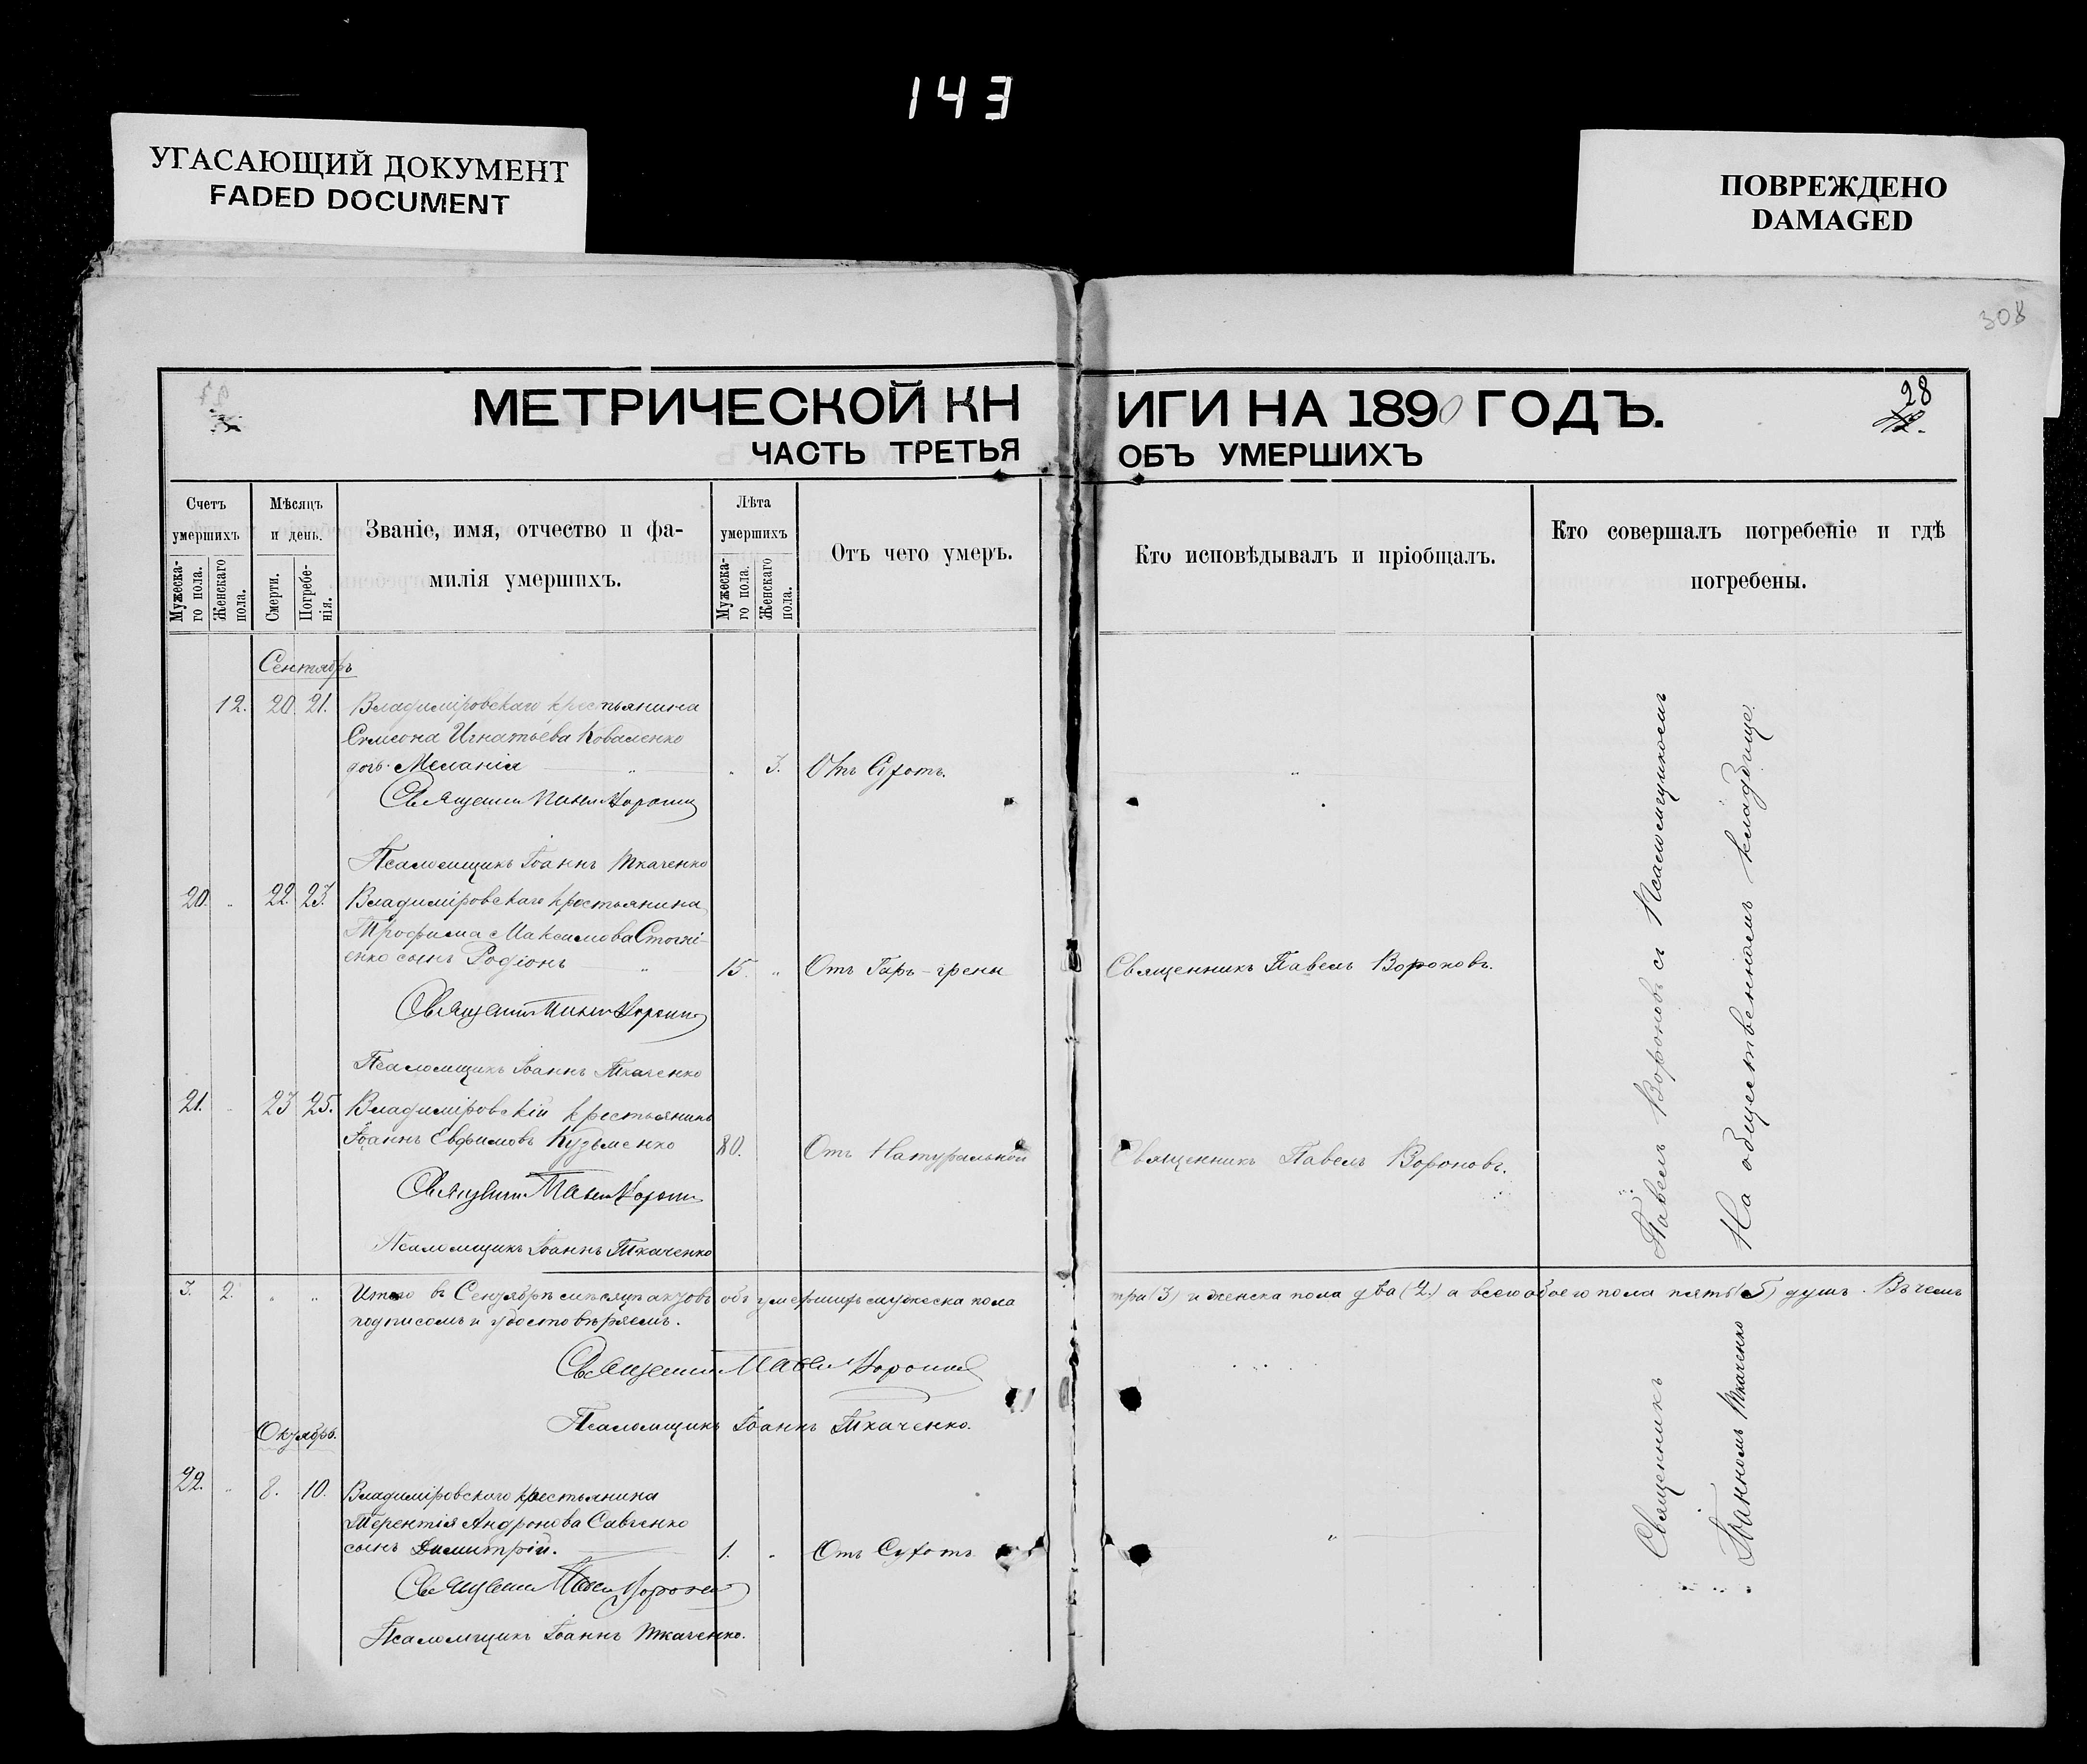 143
УГАСАЮЩИЙ ДОКУМЕНТ
FADED DOCUMENT
ПОВРЕЖДЕНО
DAMAGED
308
28
МЕТРИЧЕСКОЙ КНИГИ НА 1890 ГОДЪ.
ЧАСТЬ ТРЕТЬЯ ОБЪ УМЕРШИХЪ
Счетъ умершихъ
Мужеска-го пола.
Женскаго пола.
Мѣсяцъ и день.
Смерти.
Погребе-нія.
Званіе, имя, отчество и фа-
милія умершихъ.
Лѣта умершихъ
Мужеска-го пола
Женскаго пола.
Отъ чего умеръ.
Кто исповѣдывалъ и пріобщалъ.
Кто совершалъ погребеніе и гдѣ
погребены.
Сентябрь
12. 20 21. Владиміровскаго крестьянина
Симеона Игнатьева Коваленко
дочь Меланія " 3. Отъ Сухотъ. "
Священникъ Павелъ Вороновъ
Псаломщикъ Іоаннъ Ткаченко
20. " 22. 23. Владиміровскаго крестьянина
Трофима Максимова Стогні-
енко сынъ Родіонъ " 15. " Отъ Гарь-грены Священникъ Павелъ Вороновъ.
Священникъ Павелъ Вороновъ
Псаломщикъ Іоаннъ Ткаченко
21. " 23 25. Владиміровскій крестьянинъ
Іоаннъ Евфимовъ Кузьменко 80. Отъ Натуральной Священникъ Павелъ Вороновъ.
Священникъ Павелъ Вороновъ
Псаломщикъ Іоаннъ Ткаченко
3. 2. " " Итого въ Сентябрѣ мѣсяцѣ актовъ объ умершихъ мужеска пола три (3) и женска пола два (2.) а всего обоего пола пять (5) душъ. Въ чемъ
подписомъ и удостовѣряемъ.
Священникъ Павелъ Вороновъ
Псаломщикъ Іоаннъ Ткаченко.
Октябрь.
22. " 8. 10. Владиміровскаго крестьянина
Терентія Андронова Савченко
сынъ Димитрій. 1. " Отъ Сухотъ "
Священникъ Павелъ Вороновъ
Псаломщикъ Іоаннъ Ткаченко.
Священникъ Павелъ Вороновъ съ Псаломщикомъ
Іоанномъ Ткаченко На общественномъ кладбище.